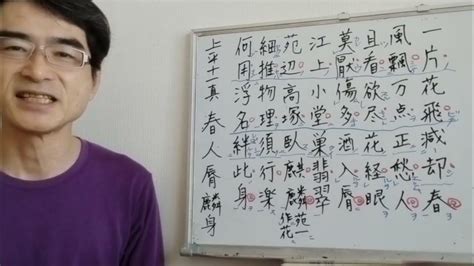 一片花飛減却春
風飄万点正愁人
且看欲尽花経眼
莫厭傷多酒入脣
江上小堂巣翡翠
苑辺高塚臥麒麟
苑一
作花
細推物理須行楽
何用浮名絆此身
上平十一真 春人脣麟身